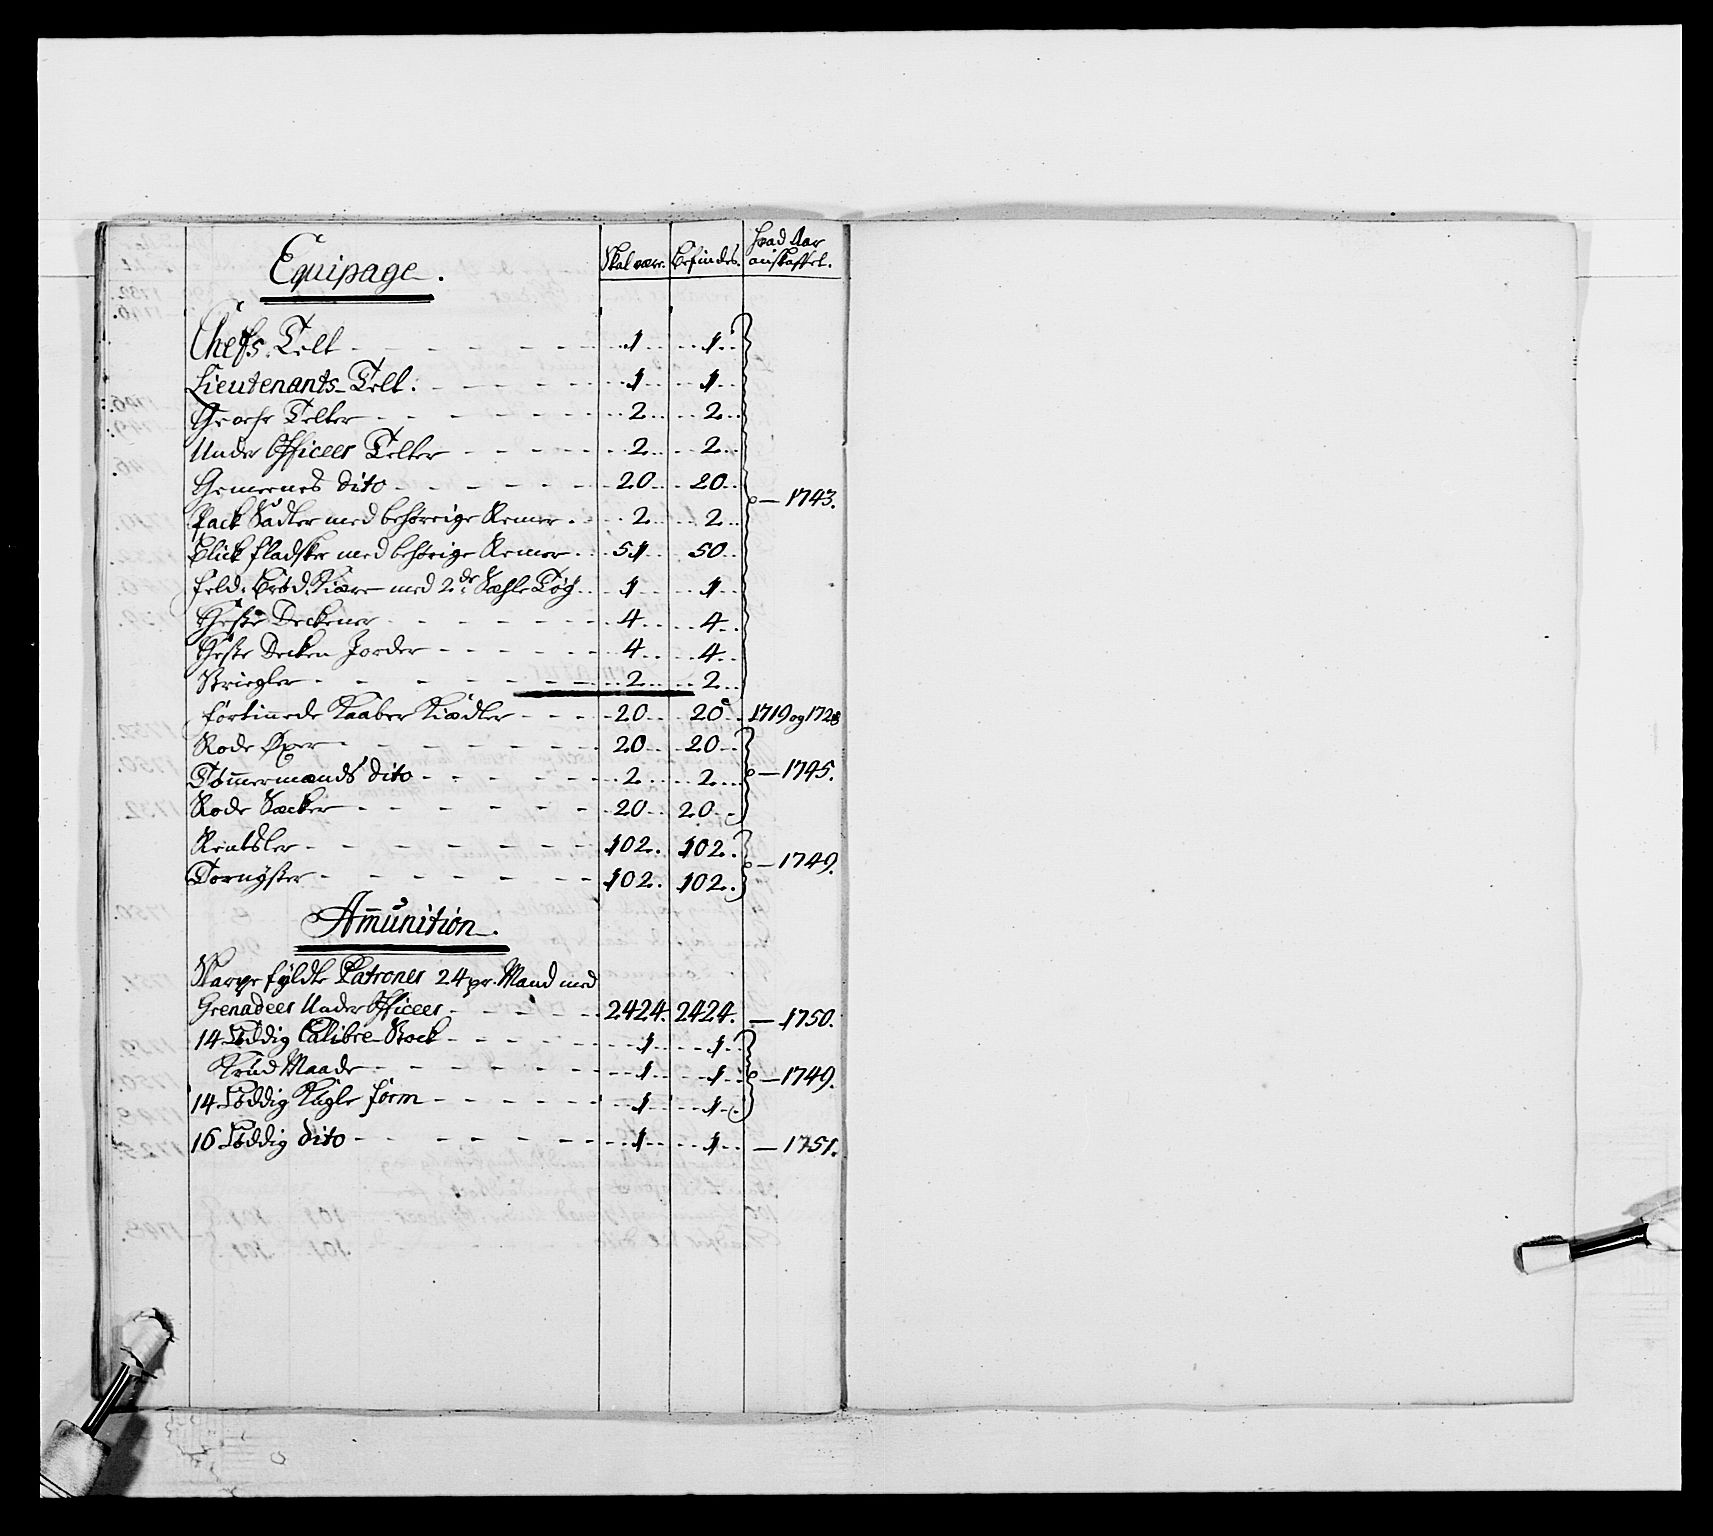 Equipage.
Skal være. Befindes. hvad Aar anskaffet.
Chefs Telt 1 1
Lieutenants Telt 1 1
Gevehr Telter 2 2
Under Officeer Telter 2 2
Gemeenes dito 20 20 1743.
Pack Sadler med behörige Remer 2 2
Blick fladsker med behörige Remer 51 50
feld Bröd Kiære med 2de Sæhle Töÿ 1 1
Heste Deckener 4 4
Heste Decken Jorder 4 4
Striegler 2 2
fortinnede Kaaber Kiædler 20 20 1719 og 1728
Rode Øxer 20 20
Tömmermands dito 2 2 1745.
Rode Sæcker 20 20
Rentsler 102 102
Tornÿster 102 102 1749.
Amunition.
Skarpe fyldte Patroner 24 pr. Mand med
Grenadeer Under Officeer 2424 2424 1750.
14 Löddig Calibre-Stock 1 1
Krud Maade 1 1 1749.
14 Löddig Kugle form 1 1
16 Löddig dito 1 1 1751.